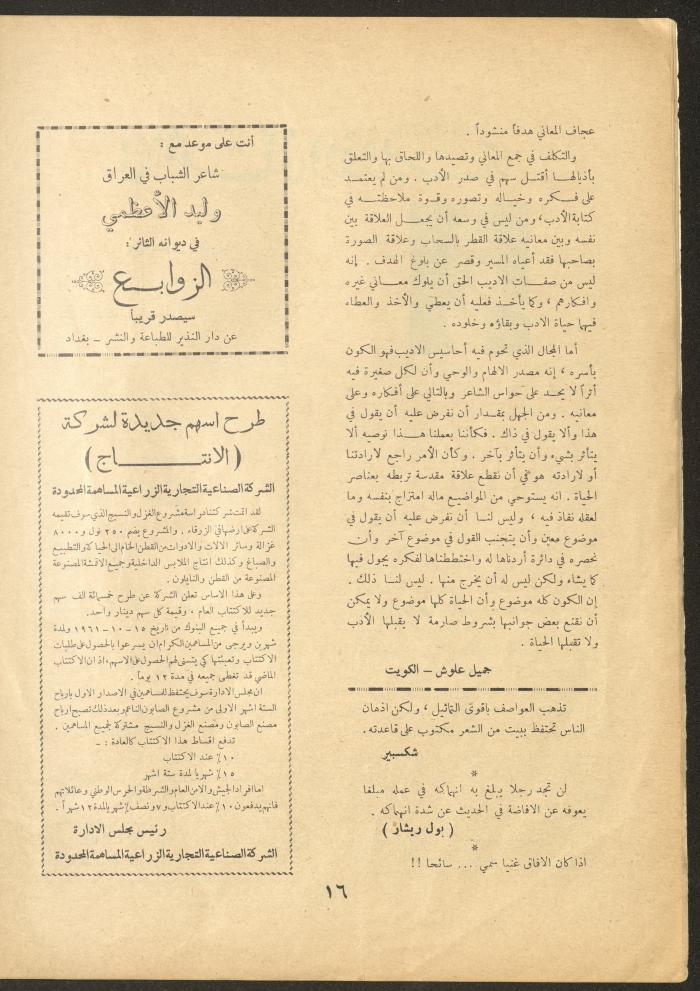 عجاف المعاني هدفاً منشوداً .
والتكلف في جمع المعاني وتصيدها واللحاق بها والتعلق
بأذيالها أقتل سهم في صدر الأدب . ومن لم يعتمد
على فكره وخياله وتصوره وقوة ملاحظته في
كتابة الأدب، ومن ليس في وسعه أن يجعل العلاقة بين
نفسه وبين معانيه علاقة القطر بالسحاب وعلاقة الصورة
بصاحبها فقد أعياه المسير وقصر عن بلوغ الهدف . إنه
ليس من صفات الاديب الحق أن يلوك معاني غيره
وافكارهم ، وكما يأخذ فعليه أن يعطي والأخذ والعطاء
فيها حياة الادب وبقاؤه وخلوده .
أما المجال الذي تحوم فيه أحاسيس الاديب فهو الكون
بأسره ، إنه مصدر الالهام والوحي وأن لكل صغيرة فيه
أثراً لا يحد على حواس الشاعر وبالتالي على أفكاره وعلى
معانيه . ومن الجهل بمقدار أن نفرض عليه أن يقول في
هذا وألا يقول في ذاك . فكأننا بعملنا هذا نوصيه ألا
يتأثر بشيء وأن يتأثر بآخر . وكأن الأمر راجع لارادتنا
أو لارادته هو في أن نقطع علاقة مقدسة تربطه بعناصر
الحياة . انه يستوحي من المواضيع ماله امتزاج بنفسه وما
لعقله نفاذ فيه ، وليس لنا أن نفرض عليه أن يقول في
موضوع معين وأن يتجنب القول في موضوع آخر وأن
نحصره في دائرة أردناها له واختططناها لفكره يجول فيها
كما يشاء ولكن ليس له أن يخرج منها . ليس لنا ذلك .
إن الكون كله موضوع وأن الحياة كلها موضوع ولا يمكن
أن نقنع بعض جوانبها بشروط صارمة لا يقبلها الأدب
ولا تقبلها الحياة .
جميل علوش – الكويت
تذهب العواصف باقوى التماثيل ، ولكن اذهان
الناس تحتفظ ببيت من الشعر مكتوب على قاعدته .
شكسبير
*
لن تجد رجلا يبلغ به انهماكه في عمله مبلغا
يعوقه عن الافاضة في الحديث عن شدة انهماكه .
( بول ريشار )
*
اذا كان الافاق غنيا سمي .... سائحا !!
أنت على موعد مع :
شاعر الشباب في العراق
وليد الأعظمي
في ديوانه الثائر :
الزوابع
سيصدر قريبا
عن دار النذير للطباعة والنشر – بغداد
طرح اسهم جديدة لشركة
( الانتاج )
الشركة الصناعية التجارية الزراعية المساهمة المحدودة
لقد اتمت شركتنا دراسة مشروع الغزل والنسيج الذي سوف تقيمه
الشركة على ارضها في الزرقاء . والمشروع يضم ٢٥٠ نول و ٨٠٠٠
غزالة وسائر الالات والادوات من القطن الخام الى الحياكة والتطبيع
والصباغ وكذلك انتاج الملابس الداخلية وجميع الاقمشة المصنوعة
المصنوعة من القطن والنايلون .
وعلى هذا الاساس تعلن الشركة عن طرح خمسمائة الف سهم
جديد للاكتتاب العام ، وقيمة كل سهم دينار واحد.
ويبدأ في جميع البنوك من تاريخ ١٥–١٠–١٩٦١ ولمدة
شهرين ويرجى من المساهمين الكرام ان يسرعوا بالحصول على طلبات
الاكتتاب وتعبئتها كي يتسنى لهم الحصول على الاسهم، اذ ان الاكتتاب
الماضي قد تغطى جميعه في مدة ١٢ يوماً .
ان مجلس الادارة سوف يحتفظ للمساهمين في الاصدار الاول بارباح
الستة اشهر الاولى من مشروع الصابون الناعم وبعد ذلك تصبح ارباح
مصنع الصابون ومصنع الغزل والنسيج مشتركة لجميع المساهمين .
تدفع اقساط هذا الاكتتاب كالعادة : –
١٠٪ عند الاكتتاب
١٥٪ شهريا لمدة ستة اشهر
اما افراد الجيش والامن العام والشرطة والحرس الوطني وعائلاتهم
فانهم يدفعون ١٠٪ عند الاكتتاب و ٧ ونصف٪ شهريا لمدة ١٢ شهراً .
رئيس مجلس الادارة
الشركة الصناعية التجارية الزراعية المساهمة المحدودة
١٦